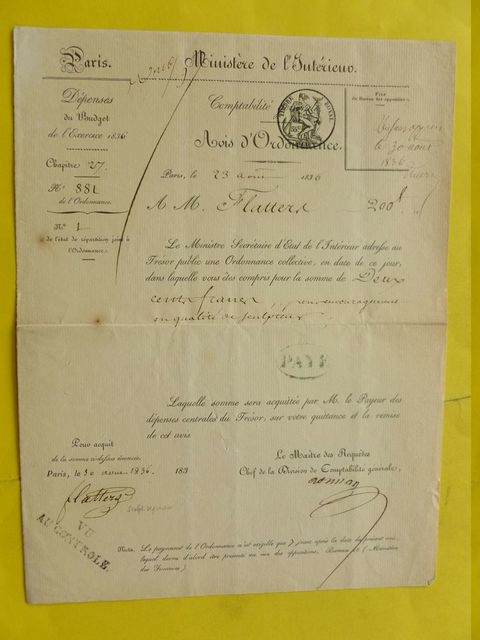 Paris.
Ministère de l'Intérieur.
Dépenses
du Budget
de l'Exercice 1836
Comptabilité
Visa
du Bureau des oppositions.
Avis d'Ordonnance.
le 30 août
1836
Chapitre 27.
N° 881
de l'Ordonnance.
N° 1
de l'état de répartition joint à
l'Ordonnance.
Paris, le 23 août 1836
A M. Flatters 200 f
Le Ministre Secrétaire d'État de l'Intérieur adresse au
Trésor public une Ordonnance collective, en date de ce jour,
dans laquelle vous êtes compris pour la somme de Deux
cents francs, pour encouragement
en qualité de sculpteur
PAYÉ
Laquelle somme sera acquittée par M. le Payeur des
dépenses centrales du Trésor, sur votre quittance et la remise
de cet avis
Pour acquit
de la somme ci-dessus énoncée.
Paris, le 30 aout 1836. 183
Le Maître des Requêtes
Chef de la Division de Comptabilité générale,
flatters
VU
AU CONTROLE.
Nota. Le payement de l'Ordonnance n'est exigible que jours après la date du présent avis
lequel devra d'abord être présenté au visa des oppositions, Bureau et l Ministère
des Finances